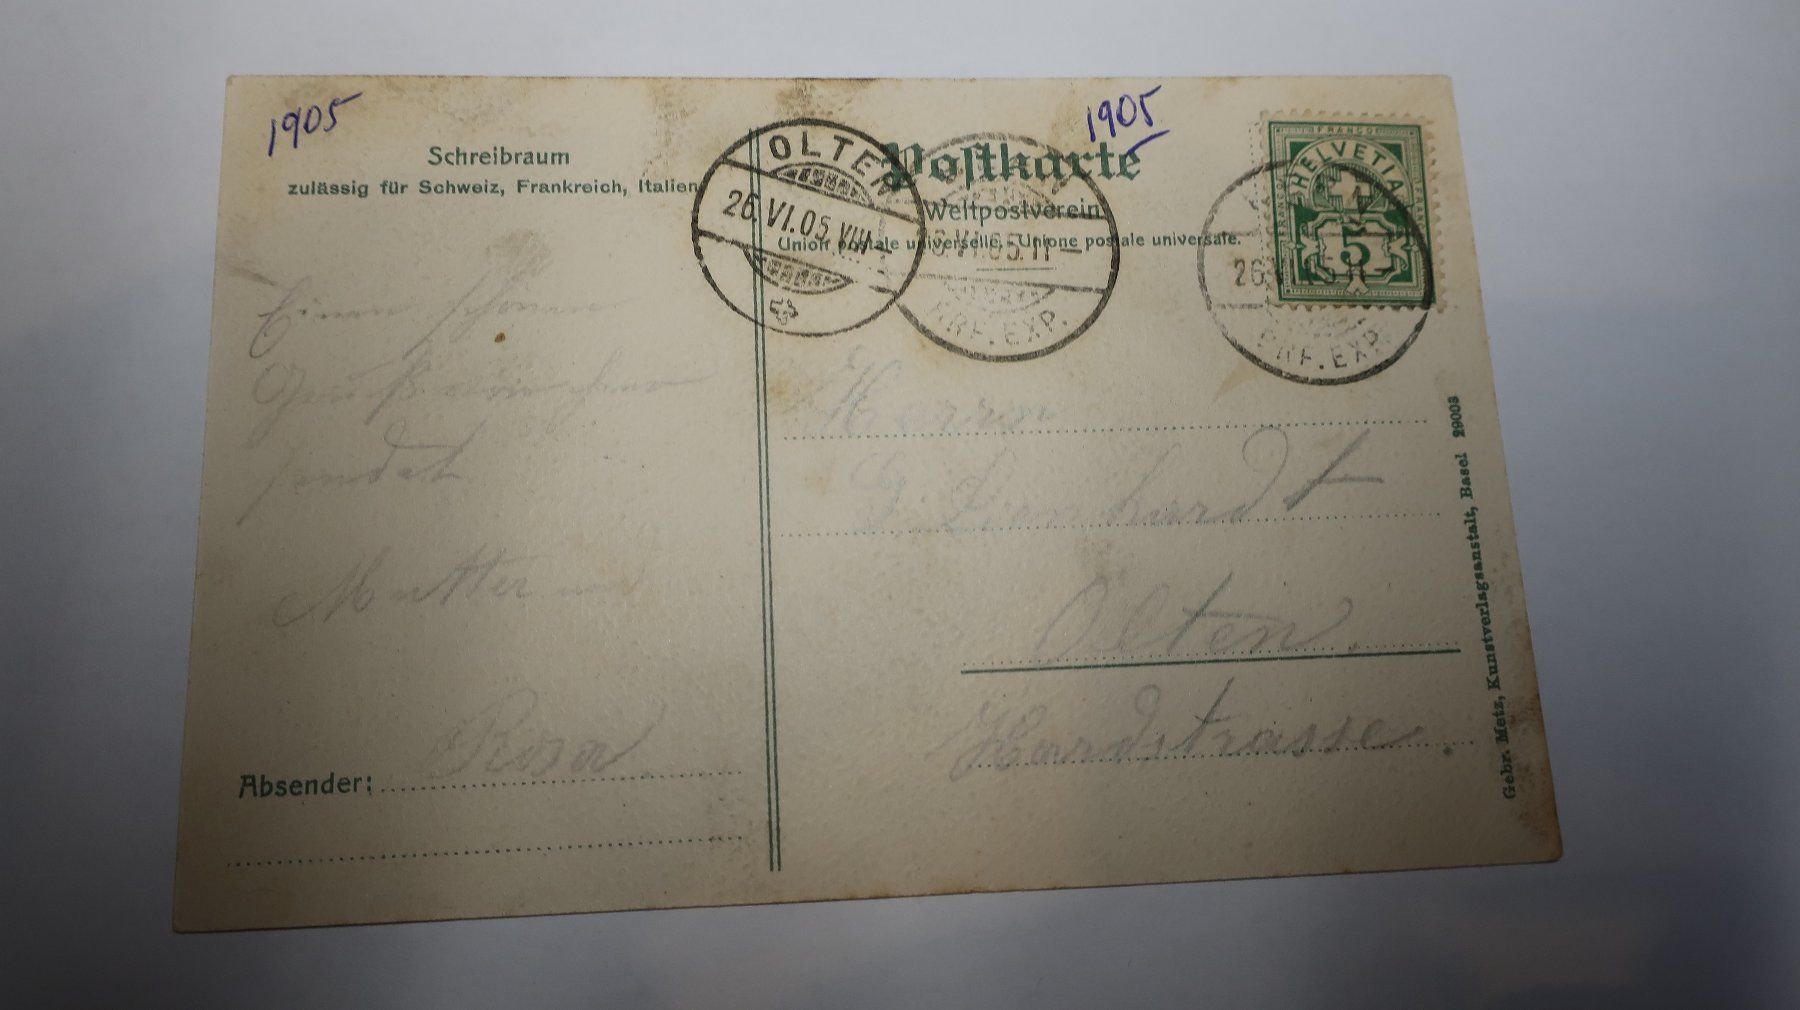 1905
1905
Schreibraum
zulässig für Schweiz, Frankreich, Italien
Postkarte
Weltpostverein
Union postale universelle. - Unione postale universale.
OLTEN
26.VI.05.VIII-
VI.05.11-
BRF.EXP.
FRANCO
HELVETIA
FRANCO
FRANCO
5
26.VI.05.11-
BRF.EXP.
Einen schönen
Gruß
sendet
Mutter und
Rosa
Absender:
Herrn
G. Lienhardt
Olten.
Hardstrasse.
Gebr. Metz, Kunstverlagsanstalt, Basel 29003